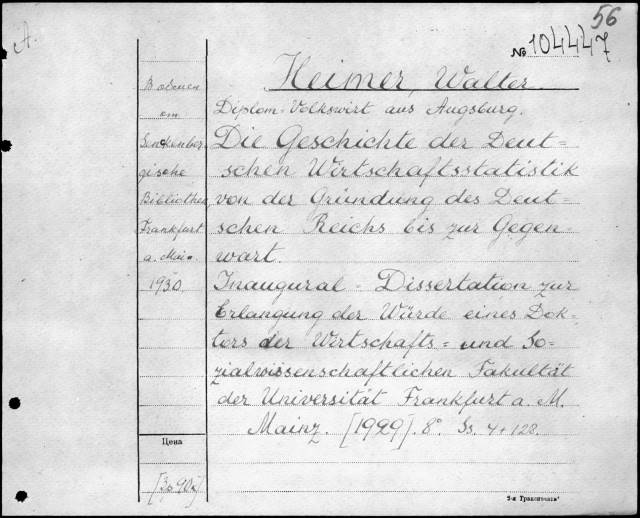 A.
56
№ 104447
Heimer, Walter.
Diplom-Volkswirt aus Augsburg.
Die Geschichte der Deut=
schen Wirtschaftsstatistik
von der Gründung des Deut=
schen Reichs bis zur Gegen=
wart.
Inaugural-Dissertation zur
Erlangung der Würde eines Dok=
tors der Wirtschafts= und So=
zialwissenschaftlichen Fakultät
der Universität Frankfurt a. M.
Mainz. [1929]. 8° Ss. 4+128.
Senckenber
gische
Bibliothek
Frankfurt
a. Main
1930.
Цена
[3p 90k]